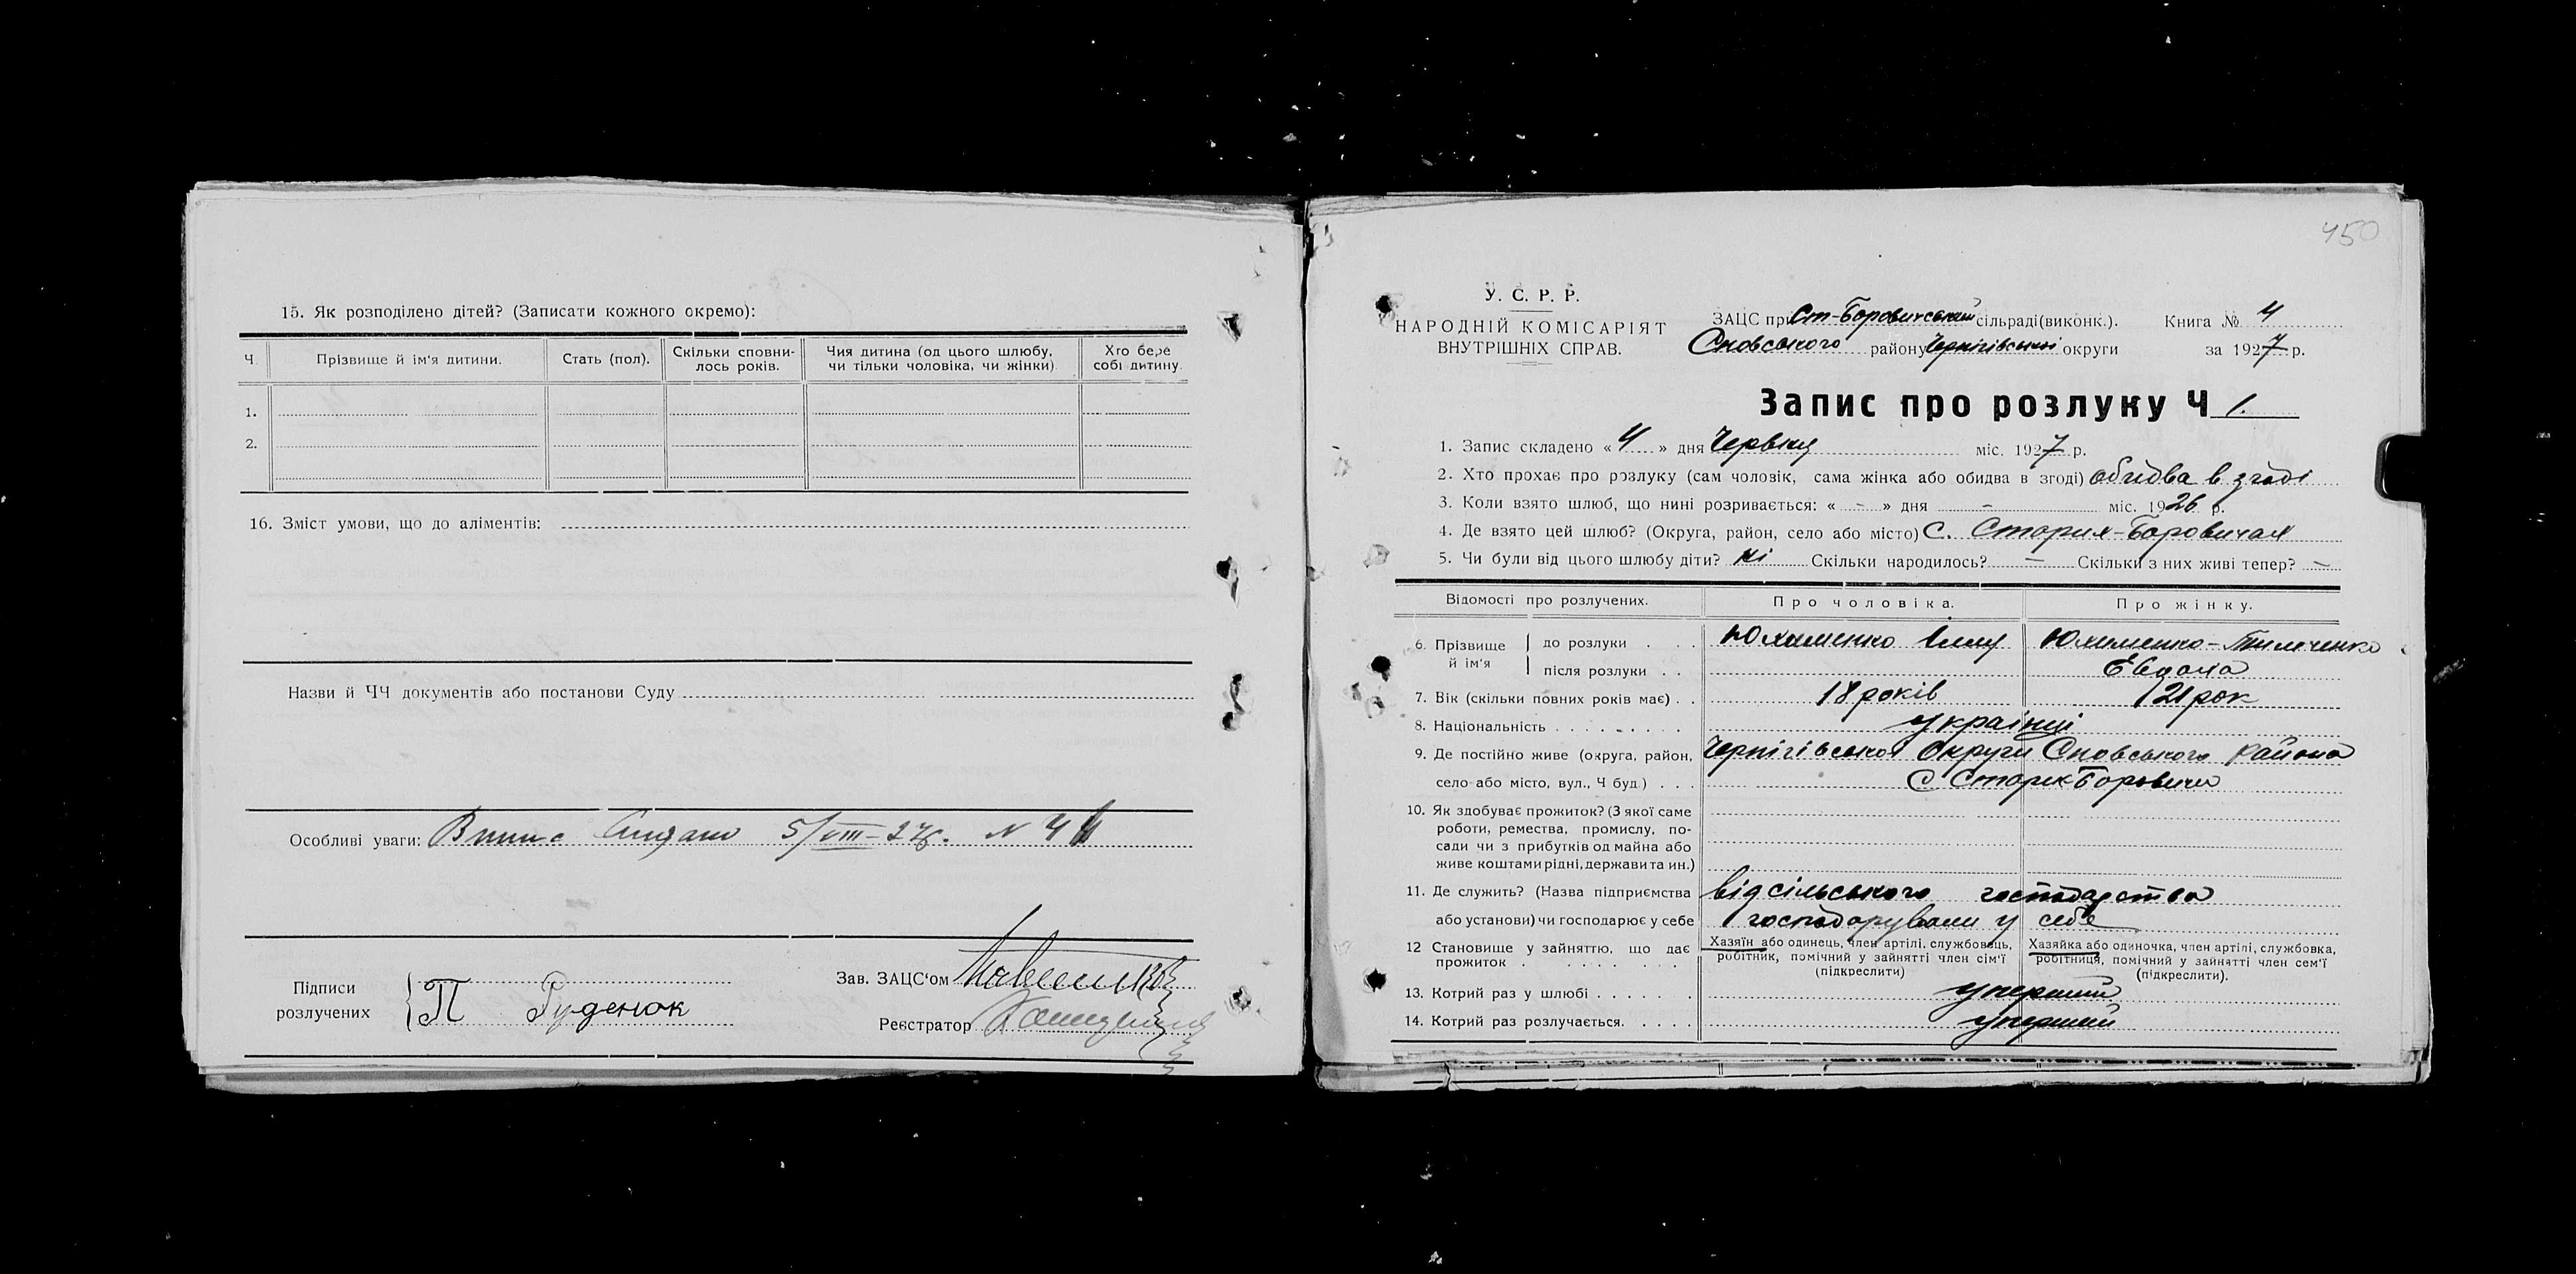 15. Як розподілено дітей? (Записати кожного окремо):
Ч. Прізвище й ім'я дитини. Стать (пол). Скільки сповни-лось років. Чия дитина (од цього шлюбу, чи тільки чоловіка, чи жінки) Хто бере собі дитину.
1.
2.
16. Зміст умови, що до аліментів:
Назви й ЧЧ документів або постанови Суду
Особливі уваги: 5/VIII-27р. N 44
Підписи розлучених П Руденок
Зав. ЗАЦС'ом
Реєстратор
450
У. С. Р. Р.
НАРОДНІЙ КОМІСАРІЯТ
ВНУТРІШНІХ СПРАВ.
ЗАЦС при Ст-Боровичський сільраді (виконк.). Книга № 4
Сновського району Чернігівської округи за 1927 р.
Запис про розлуку Ч 1.
1. Запис складено « 4 » дня Червня міс. 1927 р.
2. Хто прохає про розлуку (сам чоловік, сама жінка або обидва в згоді) обидва в згоді
3. Коли взято шлюб, що нині розривається: « - » дня - міс. 1926 р.
4. Де взято цей шлюб? (Округа, район, село або місто) С. Старих-Боровичах
5. Чи були від цього шлюбу діти? Ні Скільки народилось? — Скільки з них живі тепер? —
Відомості про розлучених. Про чоловіка. Про жінку.
6. Прізвище й ім'я до розлуки Юхименко Юхименко-
після розлуки
7. Вік (скільки повних років має) 18 років 21 рок
8. Національність українці
9. Де постійно живе (округа, район, Чернігівської округи Сновського района
село або місто, вул., Ч буд.) С Старих Боровичи
10. Як здобуває прожиток? (З якої саме
роботи, ремества, промислу, по-
сади чи з прибутків од майна або
живе коштами рідні, держави та ин.)
11. Де служить? (Назва підприємства від сільського господарства
або установи) чи господарює у себе господарували у себе
12 Становище у зайняттю, що дає прожиток
Хазяїн або одинець, член артілі, службовець, робітник, помічний у зайнятті член сім'ї (підкреслити)
Хазяйка або одиночка, член артілі, службовка, робітниця, помічний у зайнятті член сем'ї (підкреслити).
13. Котрий раз у шлюбі уперший
14. Котрий раз розлучається. уперший